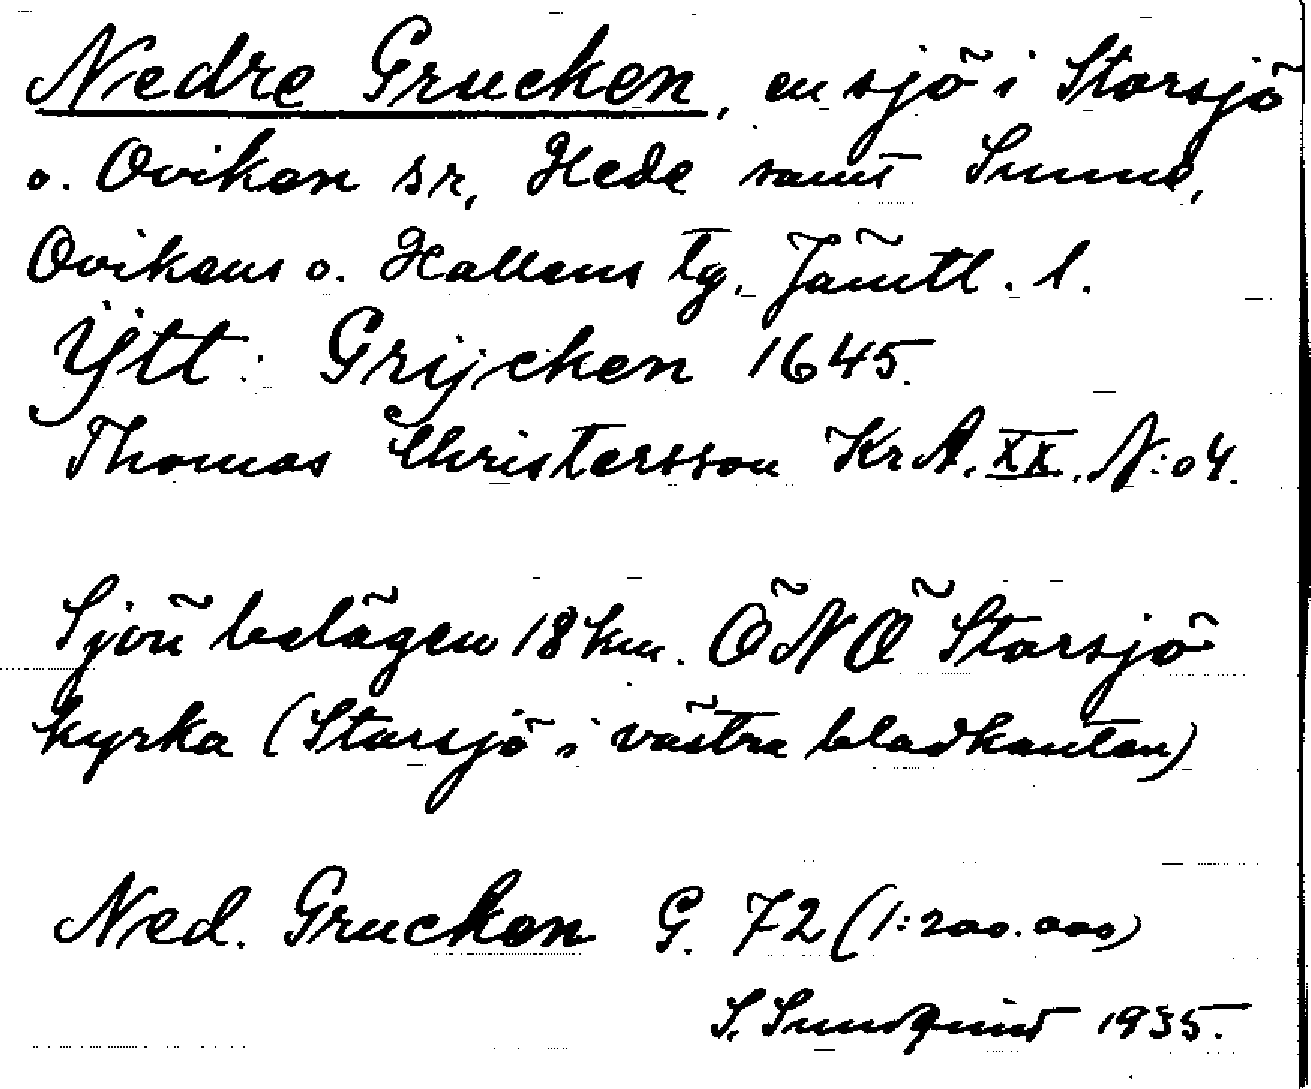 Nedre Grucken, en sjö i Storsjö
o. Oviken sn, Hede samt Sunne,
Ovikens o. Hallens tg, Jämtl. l.
Ytt: Grijcken 1645.
Thomas Christersson KrA. XX. N:o 4.
Sjön belägen 18 km. ÖNÖ Storsjö
kyrka (Storsjö i västra bladkanten)
Ned. Grucken G. 72 (1:200.000)
S. Sundquist 1935.